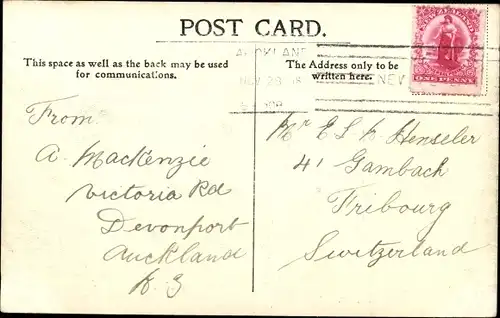 POST CARD.
This space as well as the back may be used
for communications.
The Address only to be
written here.
AUCKLAND
NOV 28
ONE PENNY
From
A. Mackenzie
Victoria Rd
Devonport
Auckland
N. Z
Mr E L H Henseler
41 Gambach
Fribourg
Switzerland